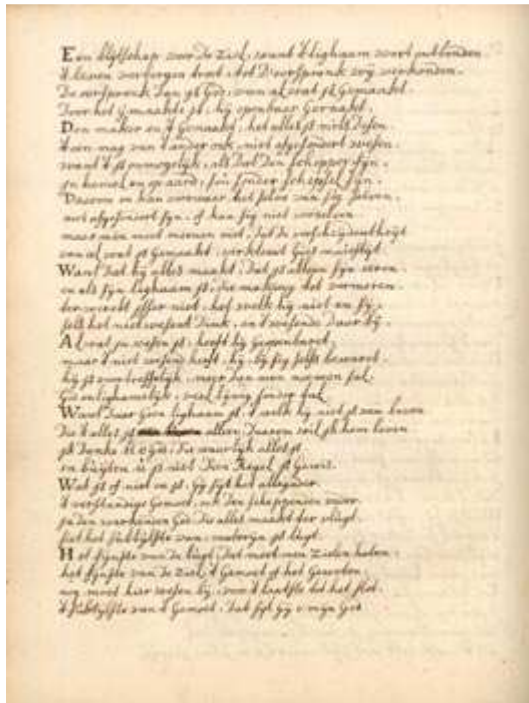 Een blijtschap voor de Ziel, want 't lighaam wort ontbonden.
't leven verborgen wort, tot D'oorspronk wy verkonden.
De oorspronk dan is God, van al wat is Gemaakt
Door het Gemaakte is hy openbaar Geraakt.
Den maker en 't Gemaakte, het alles is niets desen
't een mag van 't ander ook, niet afgesondert wesen.
want 't is onmogelijk, als dat den schepper syn,
in hemel en op aard, sou sonder schepsel syn.
Daarom en kan voorwaar het selve van sig selven,
niet afgesondert syn, of kan sig niet
maar men moet meenen niet, dat de verscheydentheyt
van al wat is Gemaakt, verkleint Gods majesteyt.
Want dat hy alles maakt, dat is alleen syn eeren.
en als syn lighaam is, die making tot vermeeren.
ter werelt isser niet, het welk hy niet en sy,
selfs het niet wesent dink, en 't wesende daar by.
Al wat in wesen is, heeft hy Geopenbaret,
maar 't niet wesend heeft, hy, by sig selfs bewaret.
hij is onbeseffelyk, meer dan men noemen sal.
Gods onlighamelyk, veel lyvig sonder Gal
Want daar Geen lighaam is, 't welk hy niet is van leven
die 't alles is alleen, daarom wil ik hem loven
ik danke u o God, die waarlyk alles is
en buyten u is niet, dien Regel is Gewis.
Wat is of niet en is, Gy syt het allegader.
't verstandige Gemoet, en den scheppenden vader.
ja den werkenden God die alles maakt ter vlugt
siet het subtylste van, materyn is lugt.
Het fynste van de lugt, dat moet men Zielen halen.
het fynste van de Ziel, 't Gemoet of het
nog moet hier wesen by, voor 't laatste tot het slot.
't subtylste van 't Gemoet, dat syt gy o myn God